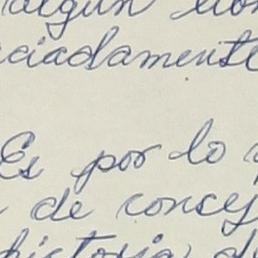 algún
ciadamente
Es por lo
de concej
historia, d